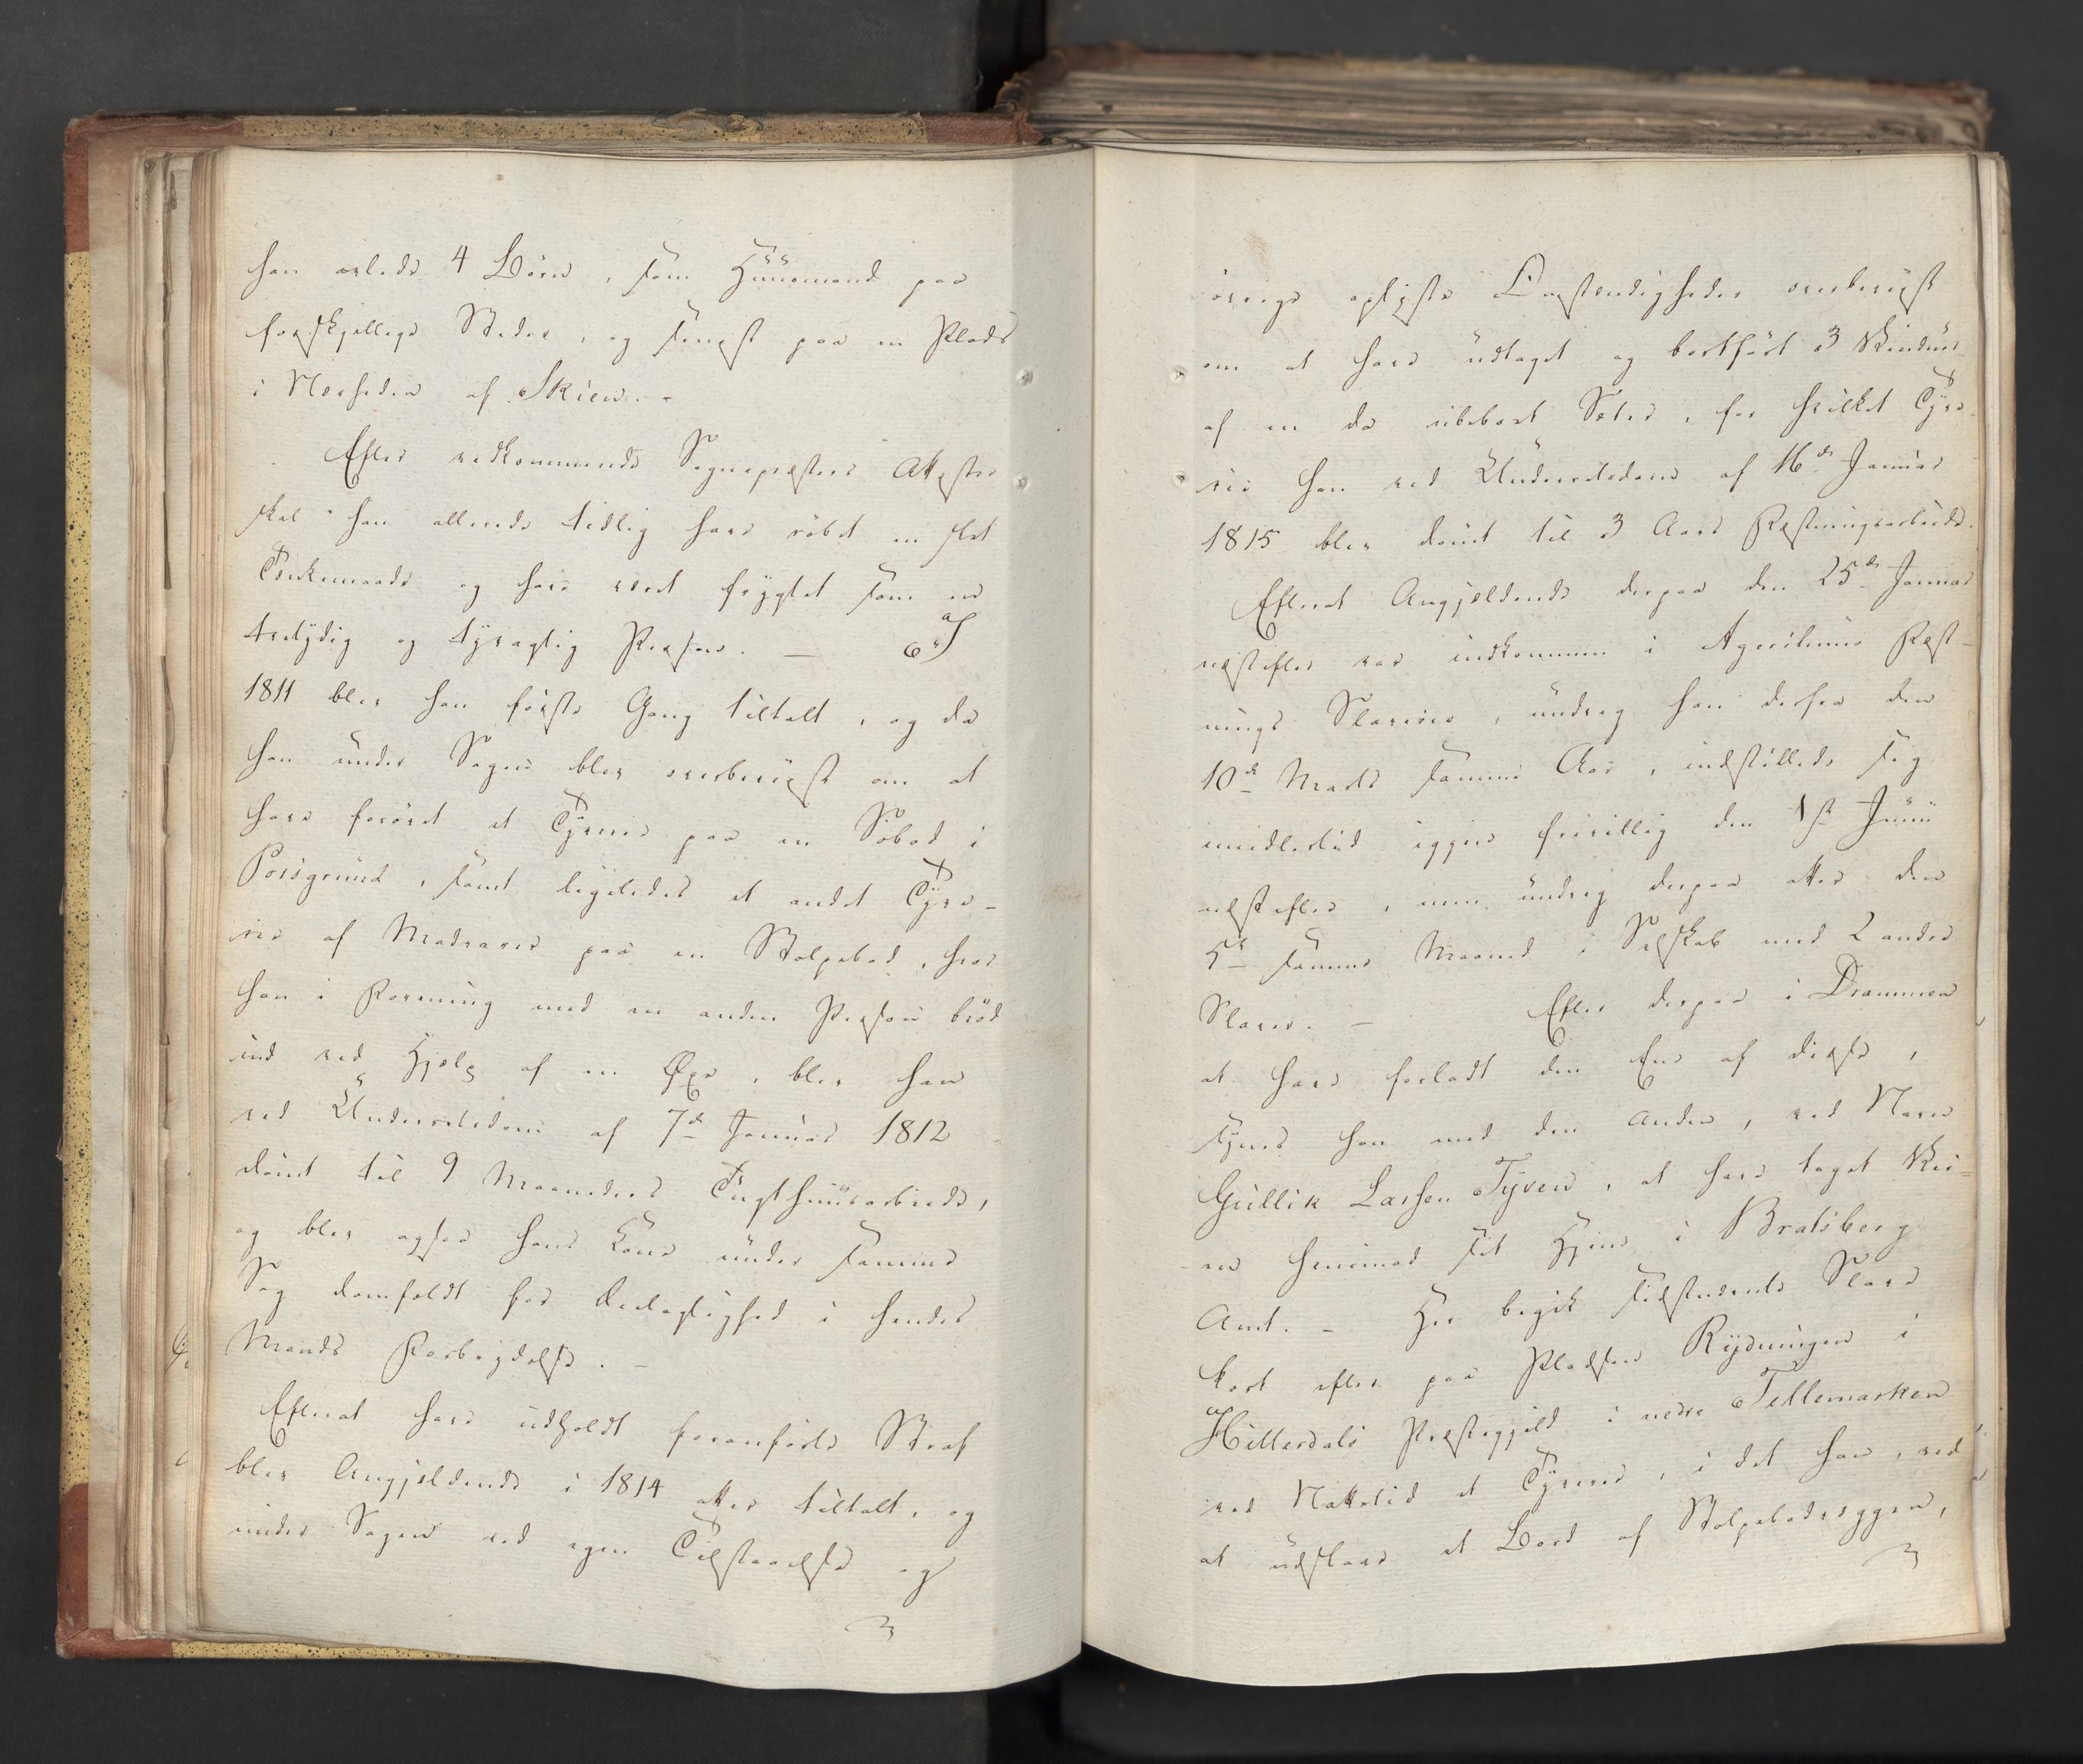 han avlede 4 Börn, som Huusmand paa
forskjellige Steder, og senest paa en Plads
i Nærheden af Skien. -
Efter vedkommende Sognepræstes Attester
skal han allerede tidlig have röbet en slet
Tænkemaade og have været frygtet som en
tvetydig og tyvagtig Person. — I
1811 blev han förste Gang tiltalt, og da
han under Sagen blev overbeviist om at
have forövet et Tyverie paa en Söbod i
Porsgrund, samt ligeledes et andet Tyve-
rie af Madvarer paa en Stolpebod, hvor
han i Forening med en anden Person bröd
ind ved Hjelp af en Öxe, blev han
ved Underretsdom af 7de Januar 1812
dömt til 9 Maaneders Tugthuusarbeide,
og blev ogsaa hans Kone under samme
Sag domfældt for Deelagtighed i hendes
Mands Forbrydelse. -
Efterat have udholdt foranförte Straf
blev Angjeldende i 1814 atter tiltalt, og
under Sagen ved egen Tilstaaelse og
övrige oplyste Omstændigheder overbeviist
om at have udtaget og bortfört 3 Vinduer
af en da ubeboet Sæter, for hvilket Tyve-
rie han ved Underretsdom af 16de Januar
1815 blev dömt til 3 Aars Fæstningsarbeide.
Efterat Angjeldende derpaa den 25de Januar
næstefter var indkommen i Agershuus Fæst-
nings Slaverie, undveg han derfra den
10de Marts samme Aar, indstillede sig
imidlertid igjen frivillig den 1ste Junii
næstefter, men undveg derpaa atter den
5te samme Maaned i Selskab med 2 andre
Slaver. — Efter derpaa i Drammen
at have forladt den Ene af disse,
synes han med den Anden, ved Navn
Gullik Larsen Tyven, at have taget Vei-
en henimod sit Hjem i Bratsberg
Amt. - Her begik sidstnævnte Slave
kort efter paa Pladsen Rydningen i
Hitterdals Præstegjeld i nedre Tellemarken
ved Nattetid et Tyverie, i det han, ved
at udslaae et Bord af Stolpebodvæggen,